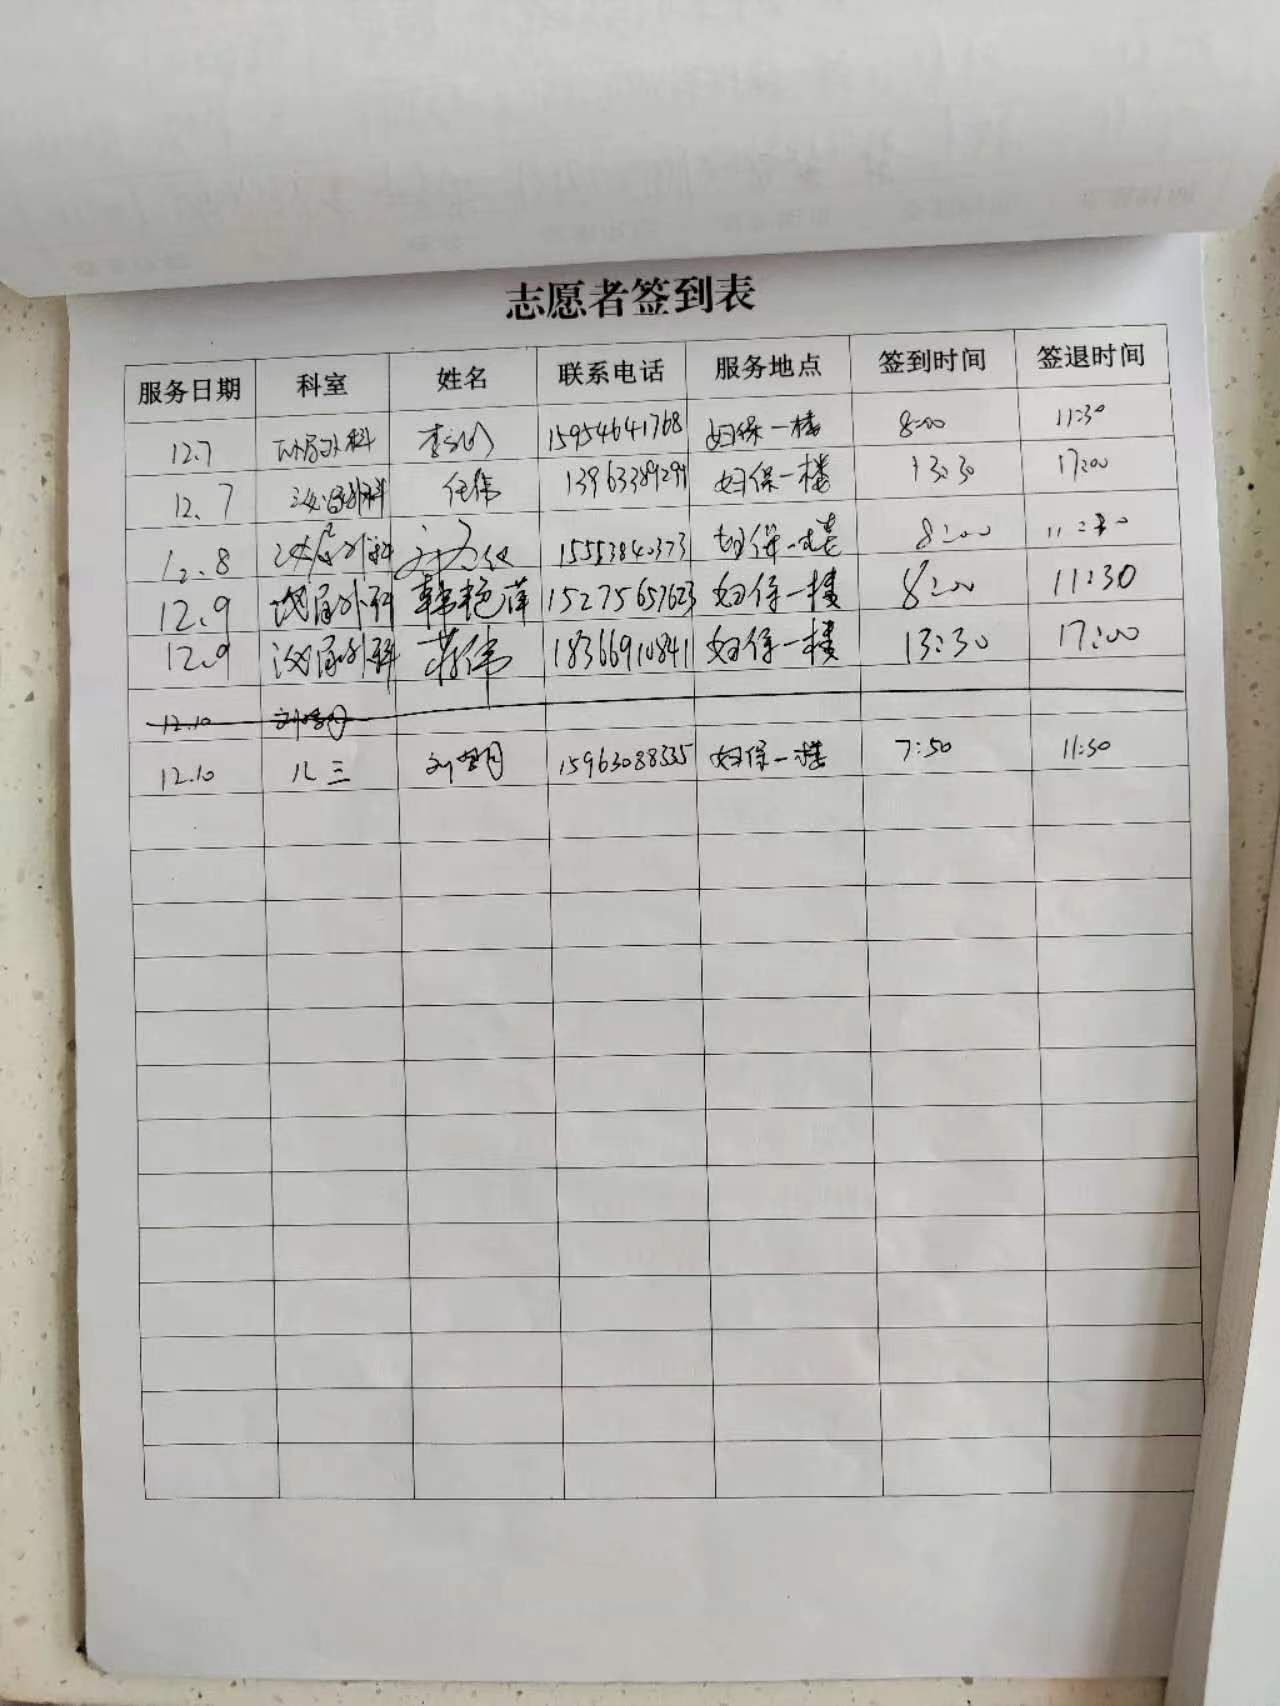 志愿者签到表
服务日期 科室 姓名 联系电话 服务地点 签到时间 签退时间
12.7 外科 15954641768 妇保一楼 8:00 11:30
12.7 泌尿外科 任伟 13963389299 妇保一楼 13:30 17:00
12.8 泌尿外科 15553840373 妇保一楼 8:00 11:30
12.9 泌尿外科 韩艳萍 15275657623 妇保一楼 8:00 11:30
12.9 泌尿外科 蒋伟 18366910841 妇保一楼 13:30 17:00
12.10
12.10 儿三 15963088335 妇保一楼 7:50 11:30